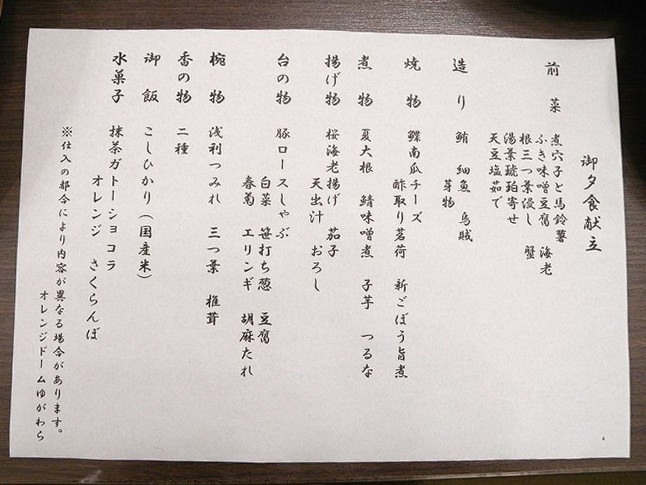 御夕食献立
前菜 煮穴子と馬鈴薯
ふき味噌豆腐 海老
根三つ葉浸し 蟹
湯葉琥珀寄せ
天豆塩茹で
造り 鮪 細魚 烏賊
芽物
焼物 鰈南瓜チーズ
酢取り茗荷 新ごぼう旨煮
煮物 夏大根 鯖味噌煮 子芋 つるな
揚げ物 桜海老揚げ 茄子
天出汁 おろし
台の物 豚ロースしゃぶ
白菜 笹打ち葱 豆腐
春菊 エリンギ 胡麻たれ
椀物 浅利つみれ 三つ葉 椎茸
香の物 二種
御飯 こしひかり(国産米)
水菓子 抹茶ガトーショコラ
オレンジ さくらんぼ
※仕入の都合により内容が異なる場合があります。
オレンジドームゆがわら